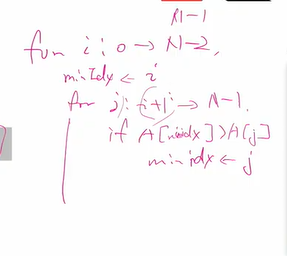 N-1
for i: 0 → N-2,
minIdx ← i
for j: i+1 → N-1,
if A[minidx] > A[j]
minidx ← j